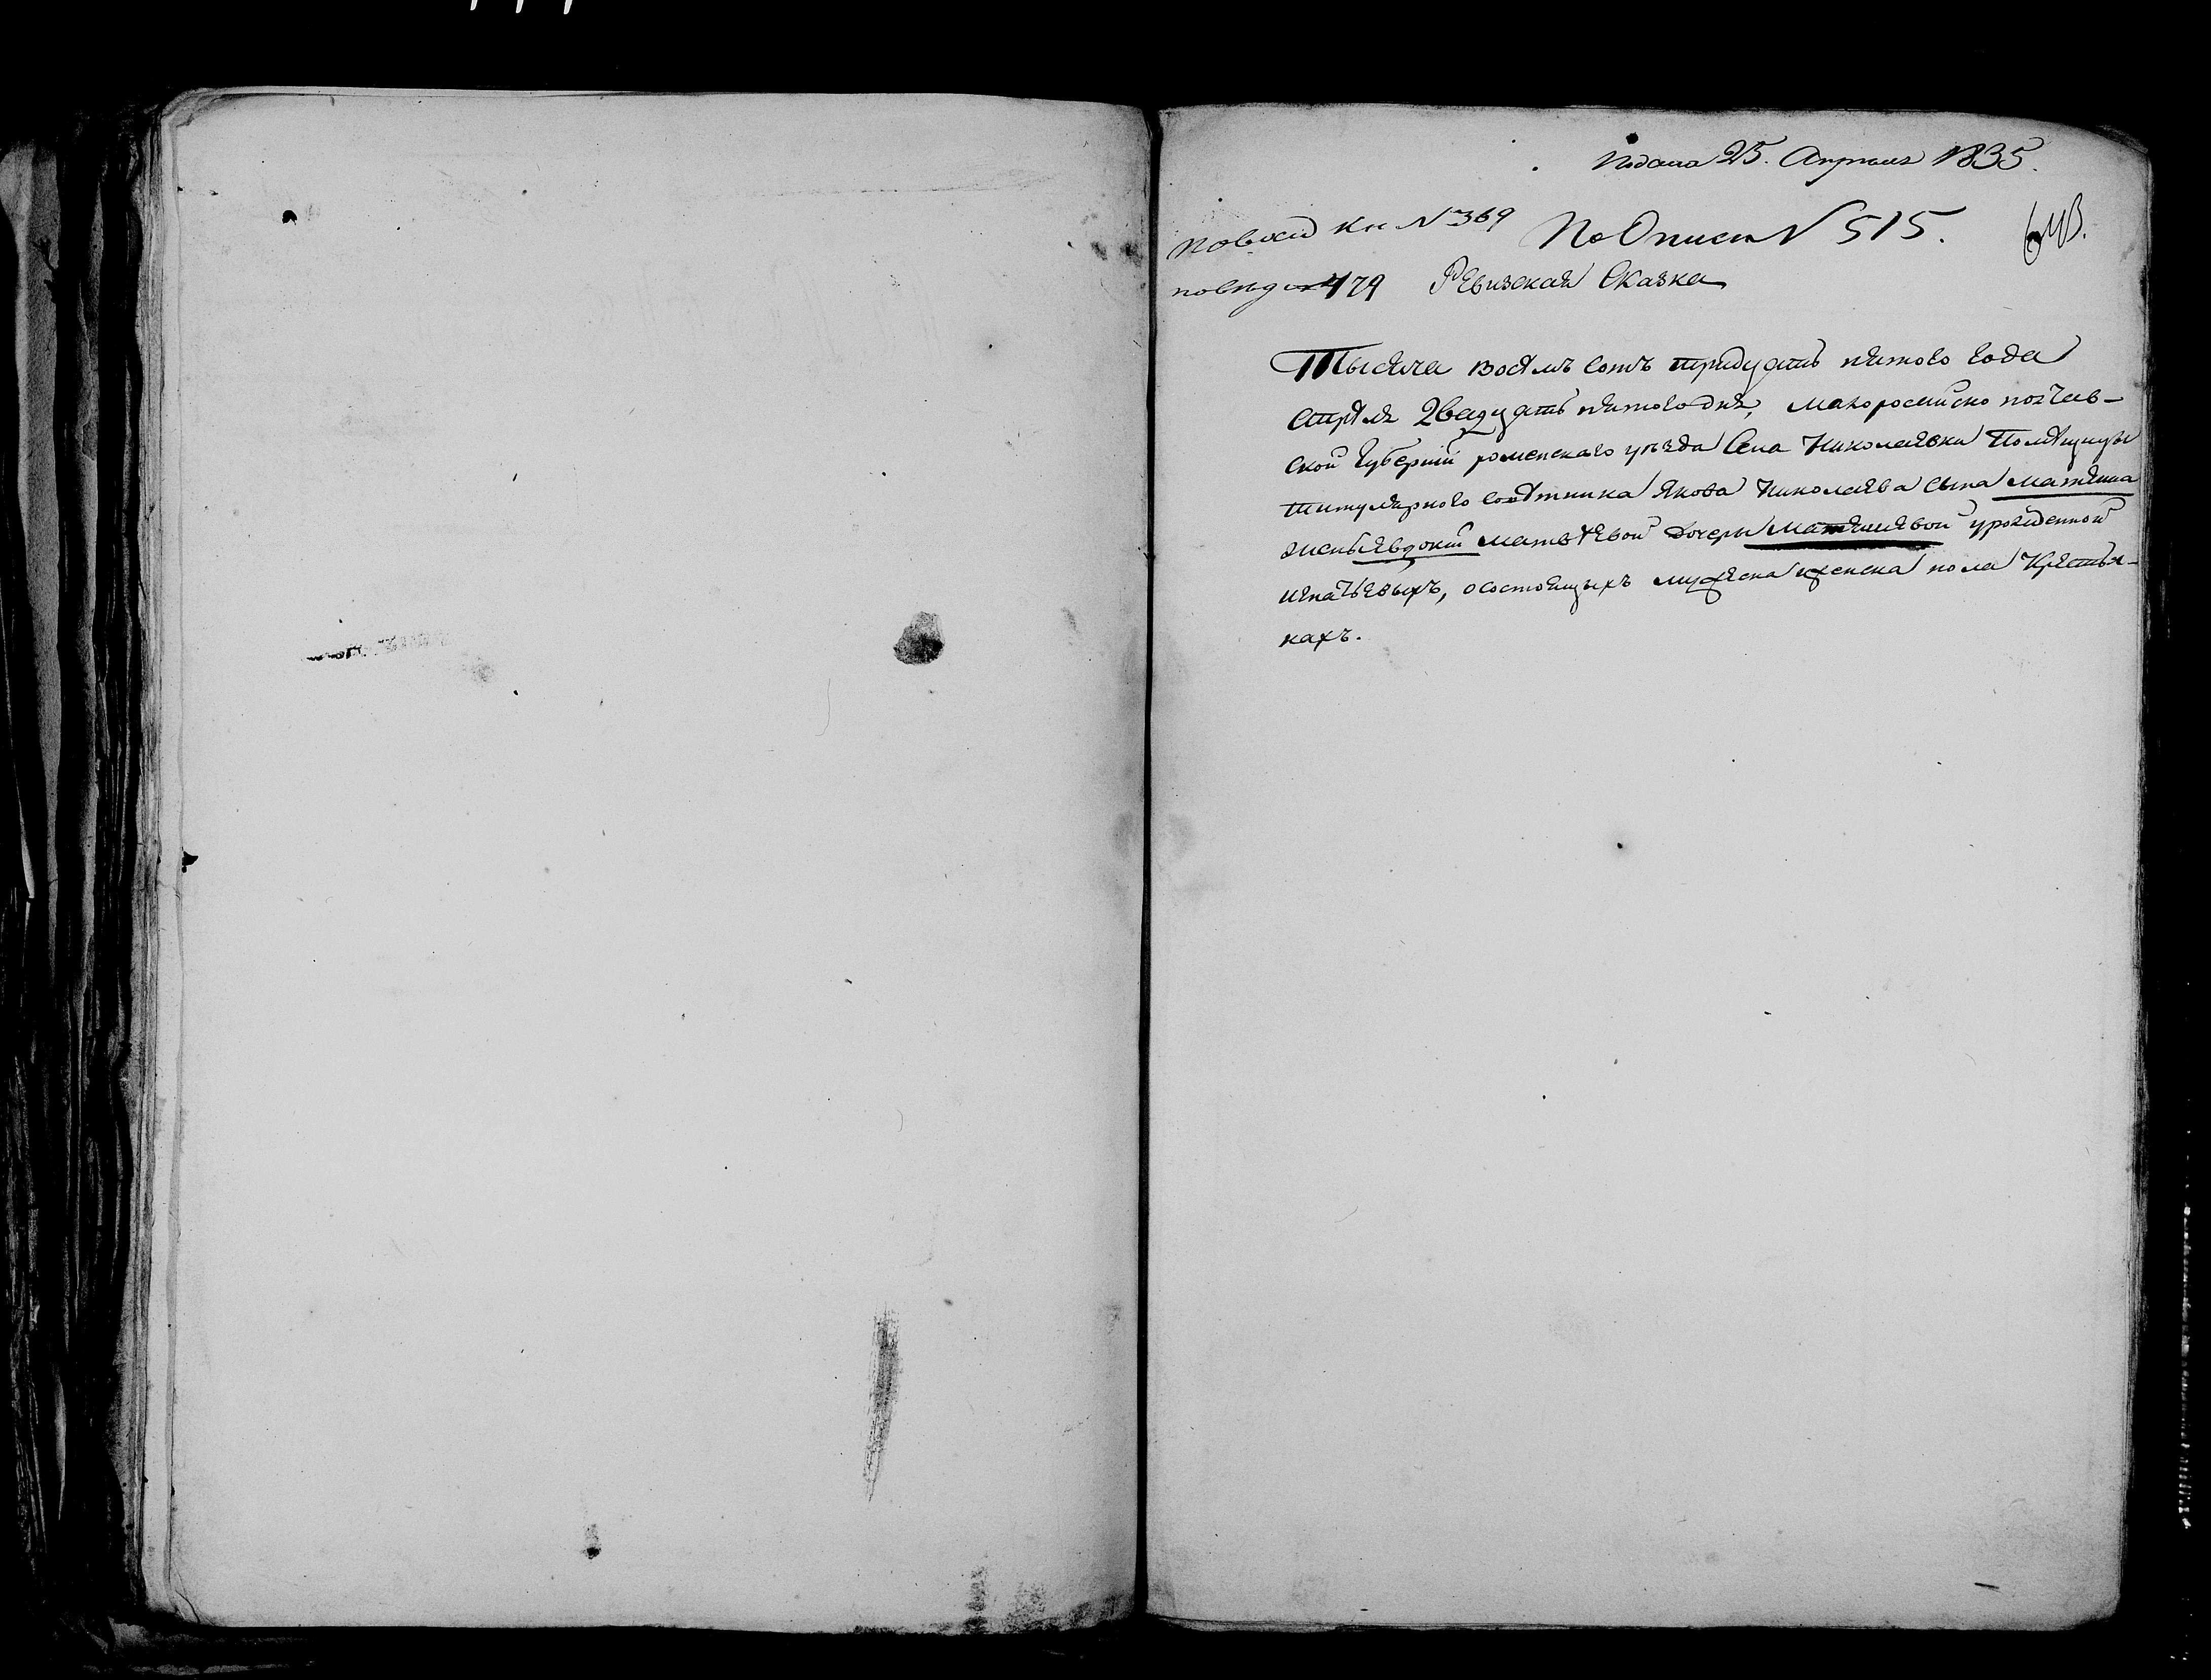 Подана 25. Апреля 1835.
По Описи N 515.
N 369
479
Ревизская Сказка
Тысяча восемъ сотъ тридцать пятого года
апреля двадцать пятого дня, малоросийско полтав-
ской Губернии роменскаго уезда Села Николаевки Помещицы
титулярного советника Якова Николаева сына
жены Евдокии матвеевой дочери урожденной
о состоящыхъ мужеска и женска пола Крестья-
нахъ.